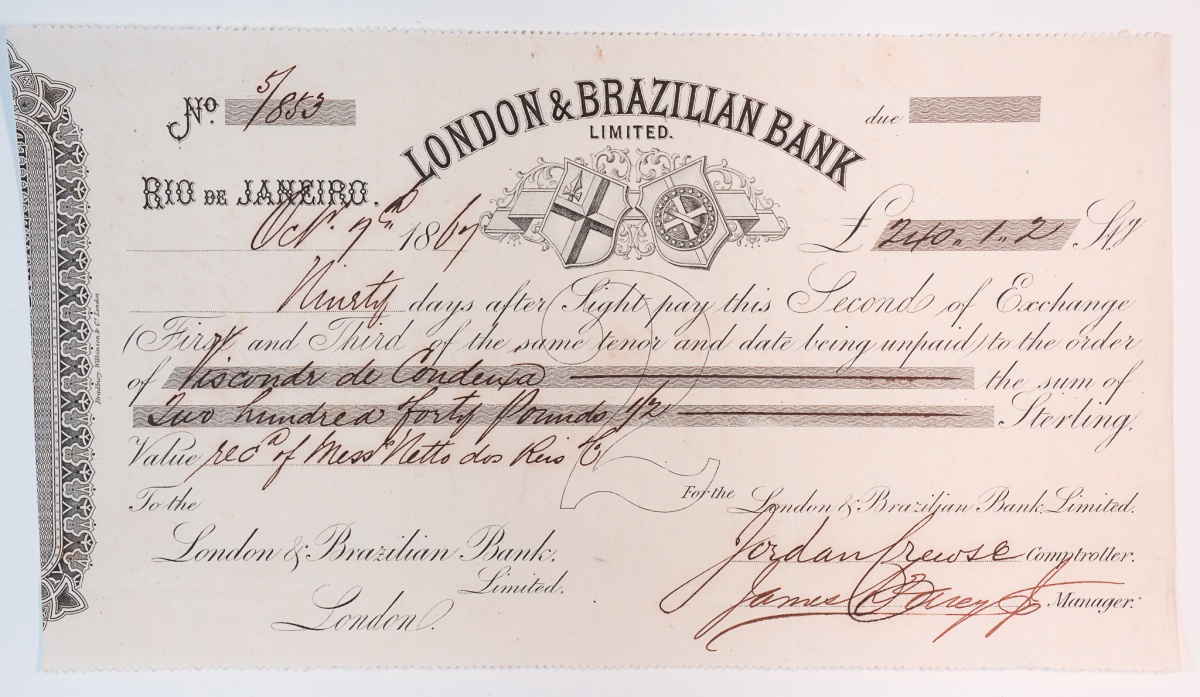 No. 5/853
LONDON & BRAZILIAN BANK
LIMITED.
due
RIO DE JANEIRO.
Oct. 9th 1867
£ 240 " 1 " 2 Stg
Ninety days after Sight pay this Second of Exchange
(First and Third of the same tenor and date being unpaid) to the order
of Visconde de Condeixa the sum of
Two hundred forty Pounds 1/2 Sterling,
Value recd of Messrs Netto dos Reis & Co
2
To the
London & Brazilian Bank,
Limited.
London.
For the London & Brazilian Bank, Limited.
Jordan Crewse Comptroller.
James Manager.
Bradbury, Wilkinson & Co. London